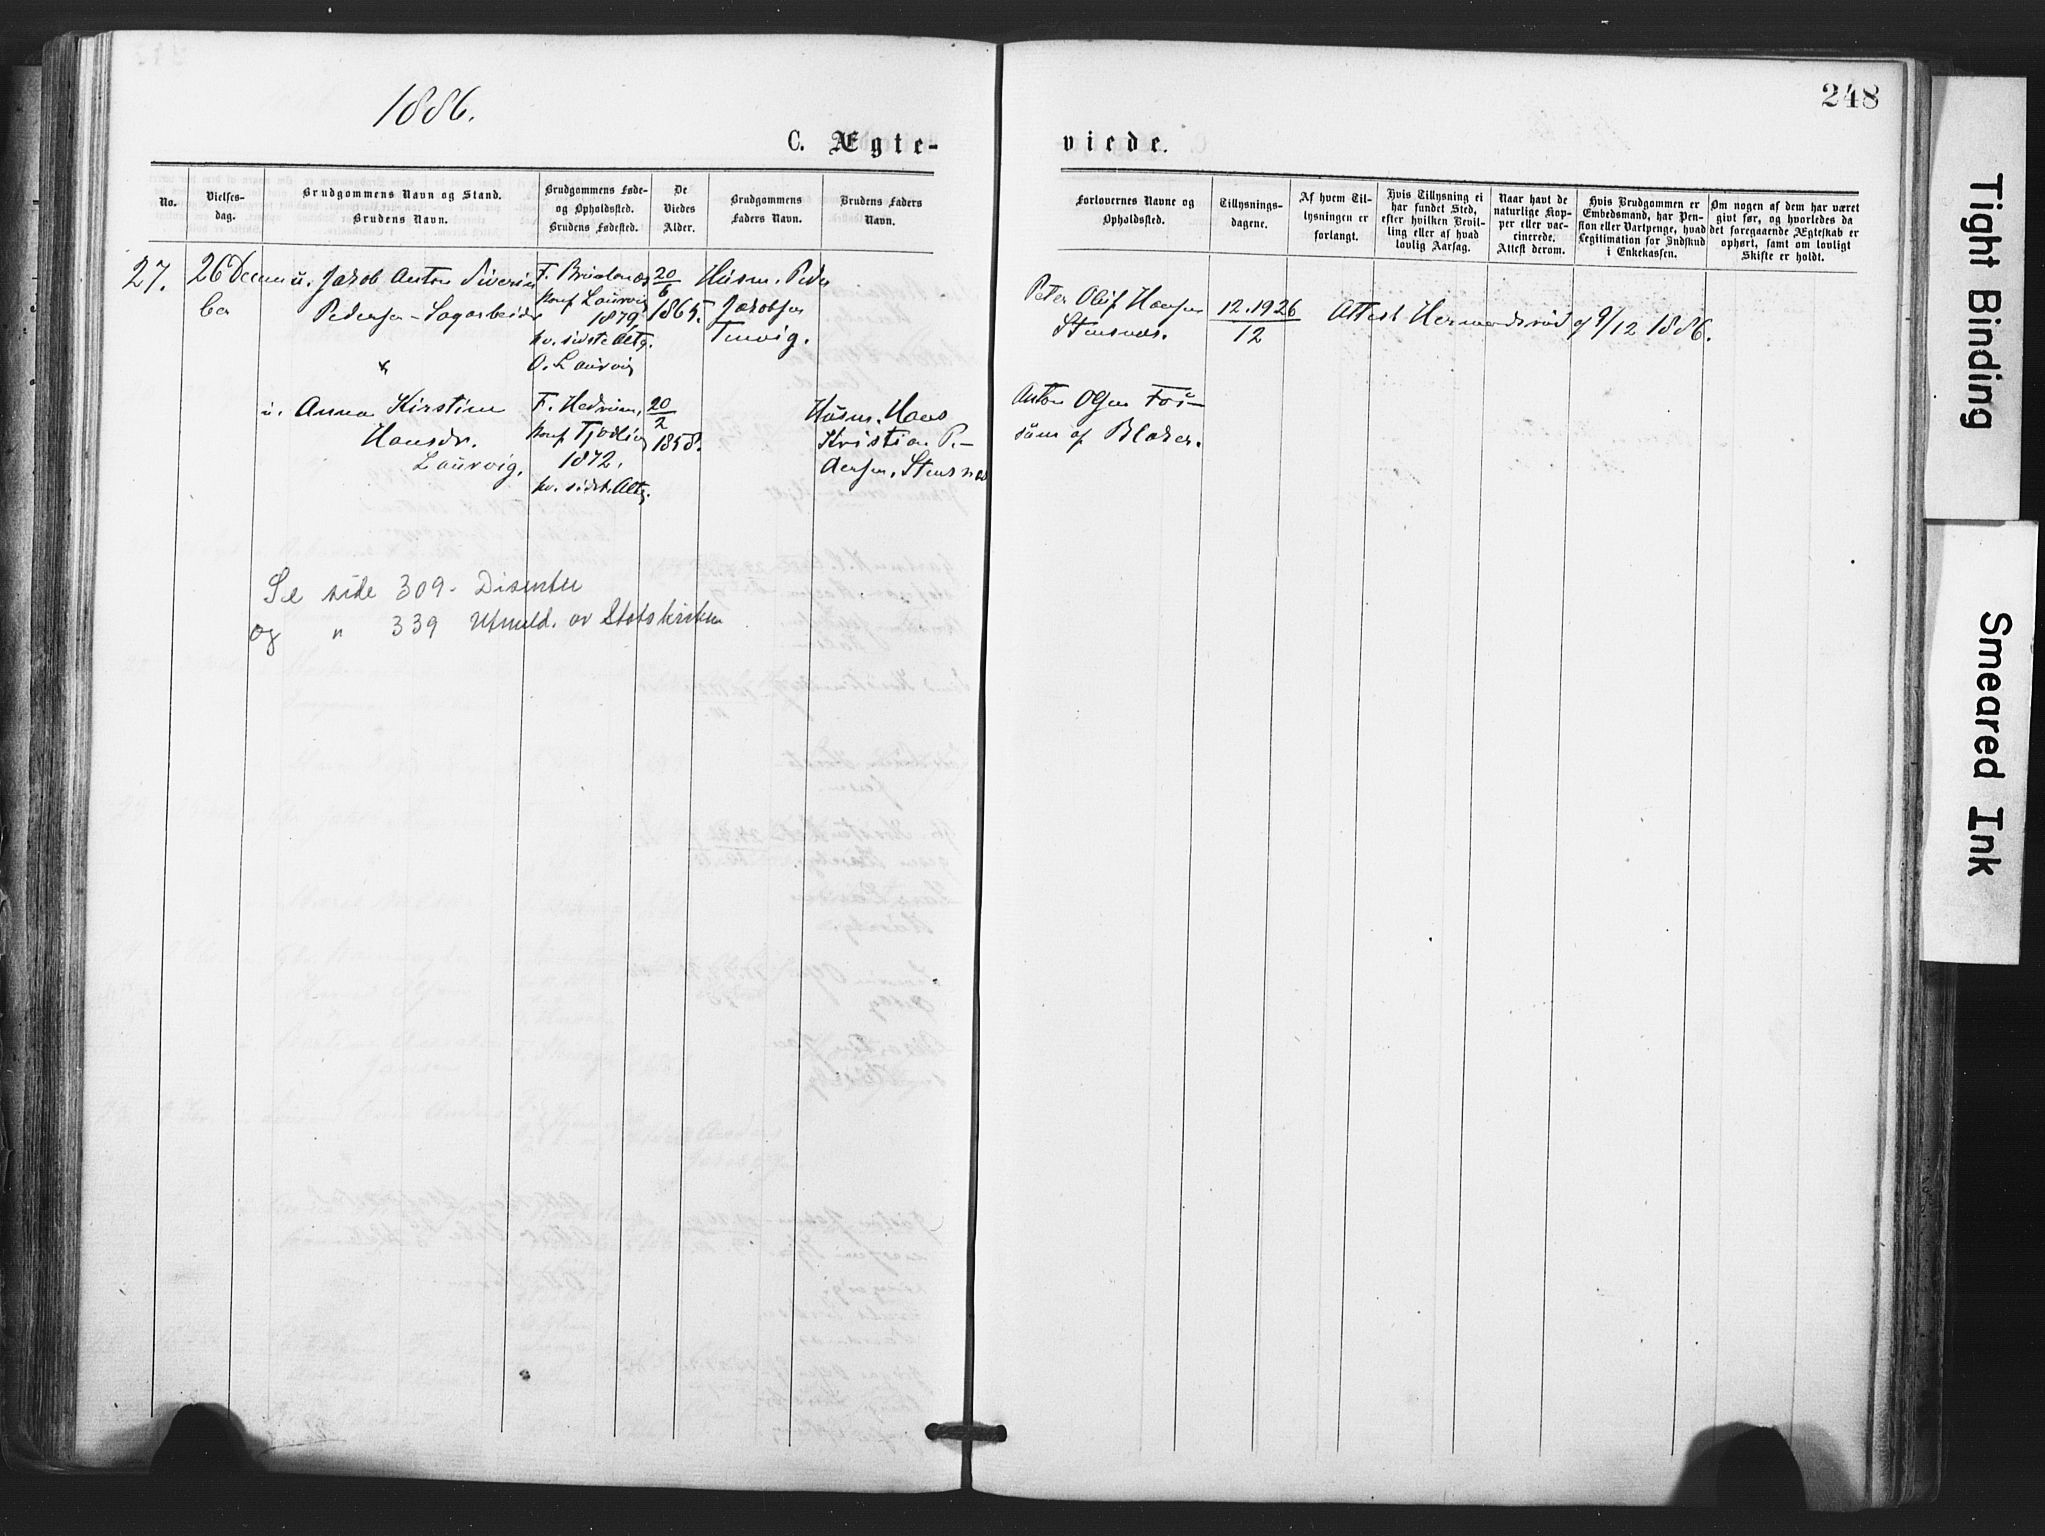 1886.
248
C. Ægte-
viede.
No.
Vielses-
dag.
Brudgommens Navn og Stand.
Brudens Navn.
Brudgommens Føde-
og Opholdssted.
Brudens Fødested.
De
Viedes
Alder.
Brudgommens
Faders Navn.
Brudens Faders
Navn.
Forlovernes Navne og
Opholdssted.
Tillysnings-
dagene.
Af hvem Til-
lysningen er
forlangt.
Hvis Tillysning ei
har fundet Sted,
efter hvilken Bevil-
ling eller af hvad
lovlig Aarsag.
Naar havt de
naturlige Kop-
per eller vac-
cinerede.
Attest derom.
Hvis Brudgommen er
Embedsmand, har Pen-
sion eller Vartpenge, hvad
Legitimation for Indskud
i Enkekassen.
Om nogen af dem har været
givt før, og hvorledes da
det foregaaende Ægteskab er
ophørt, samt om lovligt
Skifte er holdt.
27.
26 Decem
ber
u. Jakob Anton Siverin
Pedersen - Sagarbeider
F.
konf Laurvig
1879,
kv. sidste Altg.
O. Laurvig
20
6
1865.
Husm. Peder
Jakobsen
Peter Oluf Hansen
Stensnæs.
12.19 26
12
Attest Hermandsrød af 9/12 1886.
&
u. Anna Kirstine
Hansdr.
Laurvig.
F. Hedrum,
konf Tjødling
1872.
kv. sidst. Altg.
20
2
1858.
Husm. Hans
Kristian Pe-
dersen, Stensnæs
Anton Olsen
af
Se side 309 - Disenter
og " 339 Utmeld. av Statskirken
Tight Binding
Smeared Ink